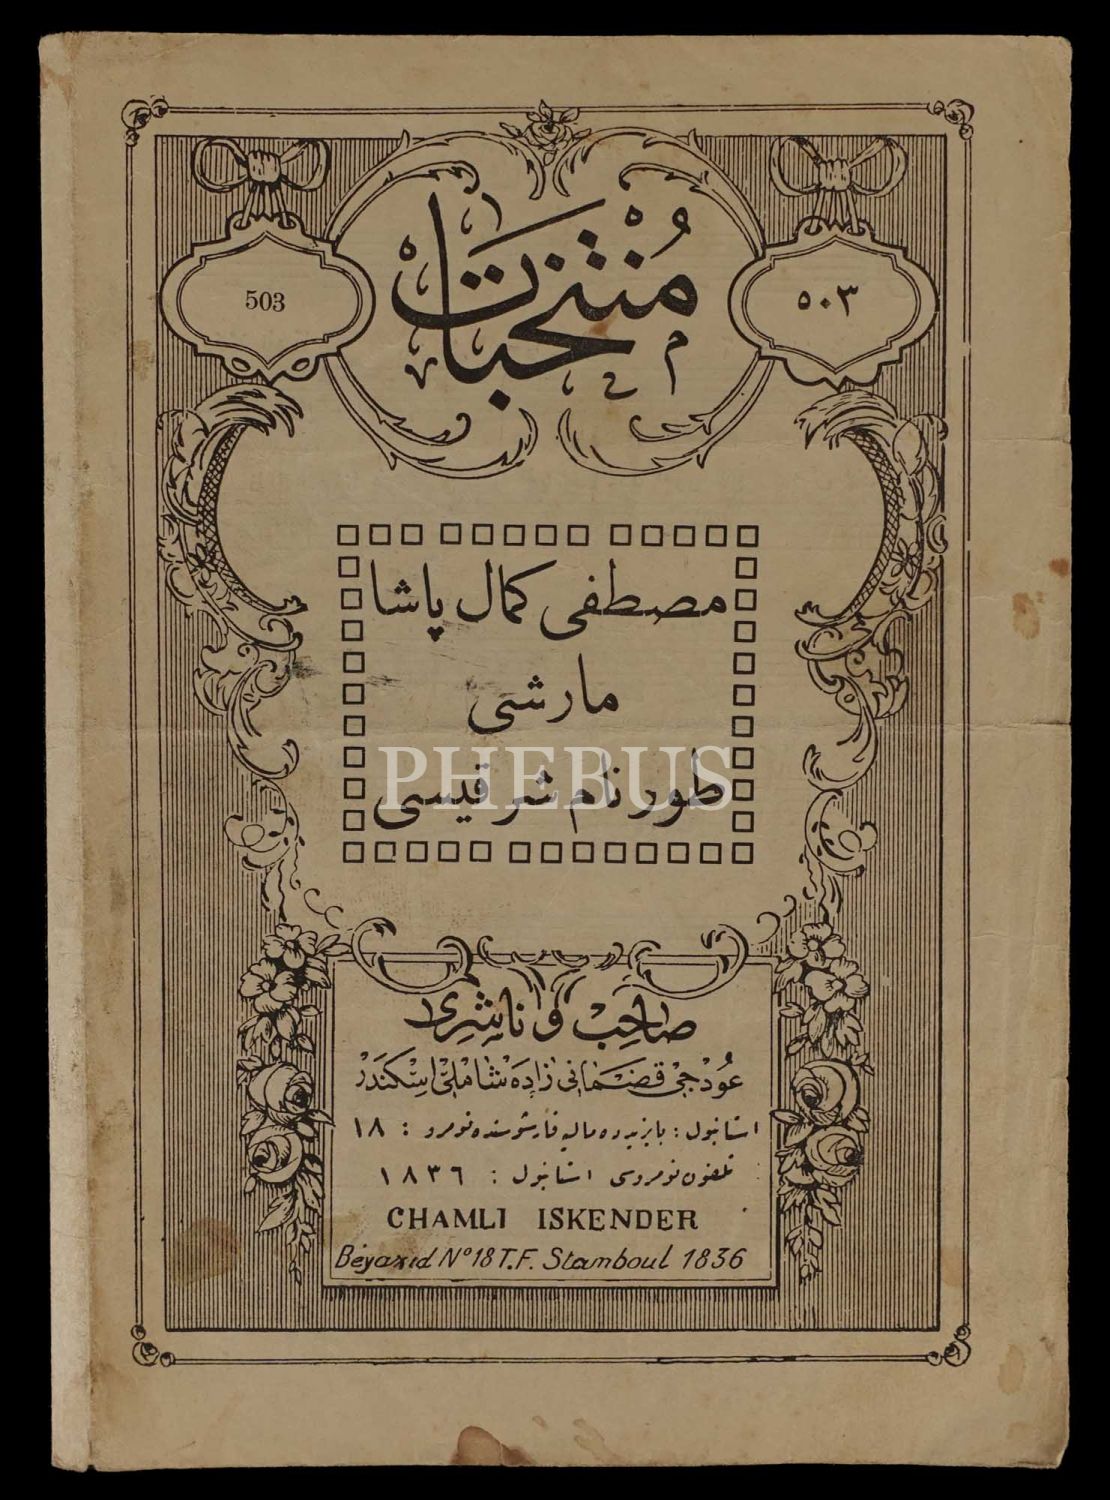 منتخبات
503
٥٠٣
مصطفى كمال پاشا
مارشى
طورنام شرقيسى
PHEBUS
صاحب و ناشرى
عودجى قضمانى زاده شاملى اسكندر
استانبول : بايزيدده ماليه قارشوسنده نومرو : ١٨
تلفون نومروسى استانبول : ١٨٣٦
CHAMLI ISKENDER
Béyazid N°18 T.F. Stamboul 1836